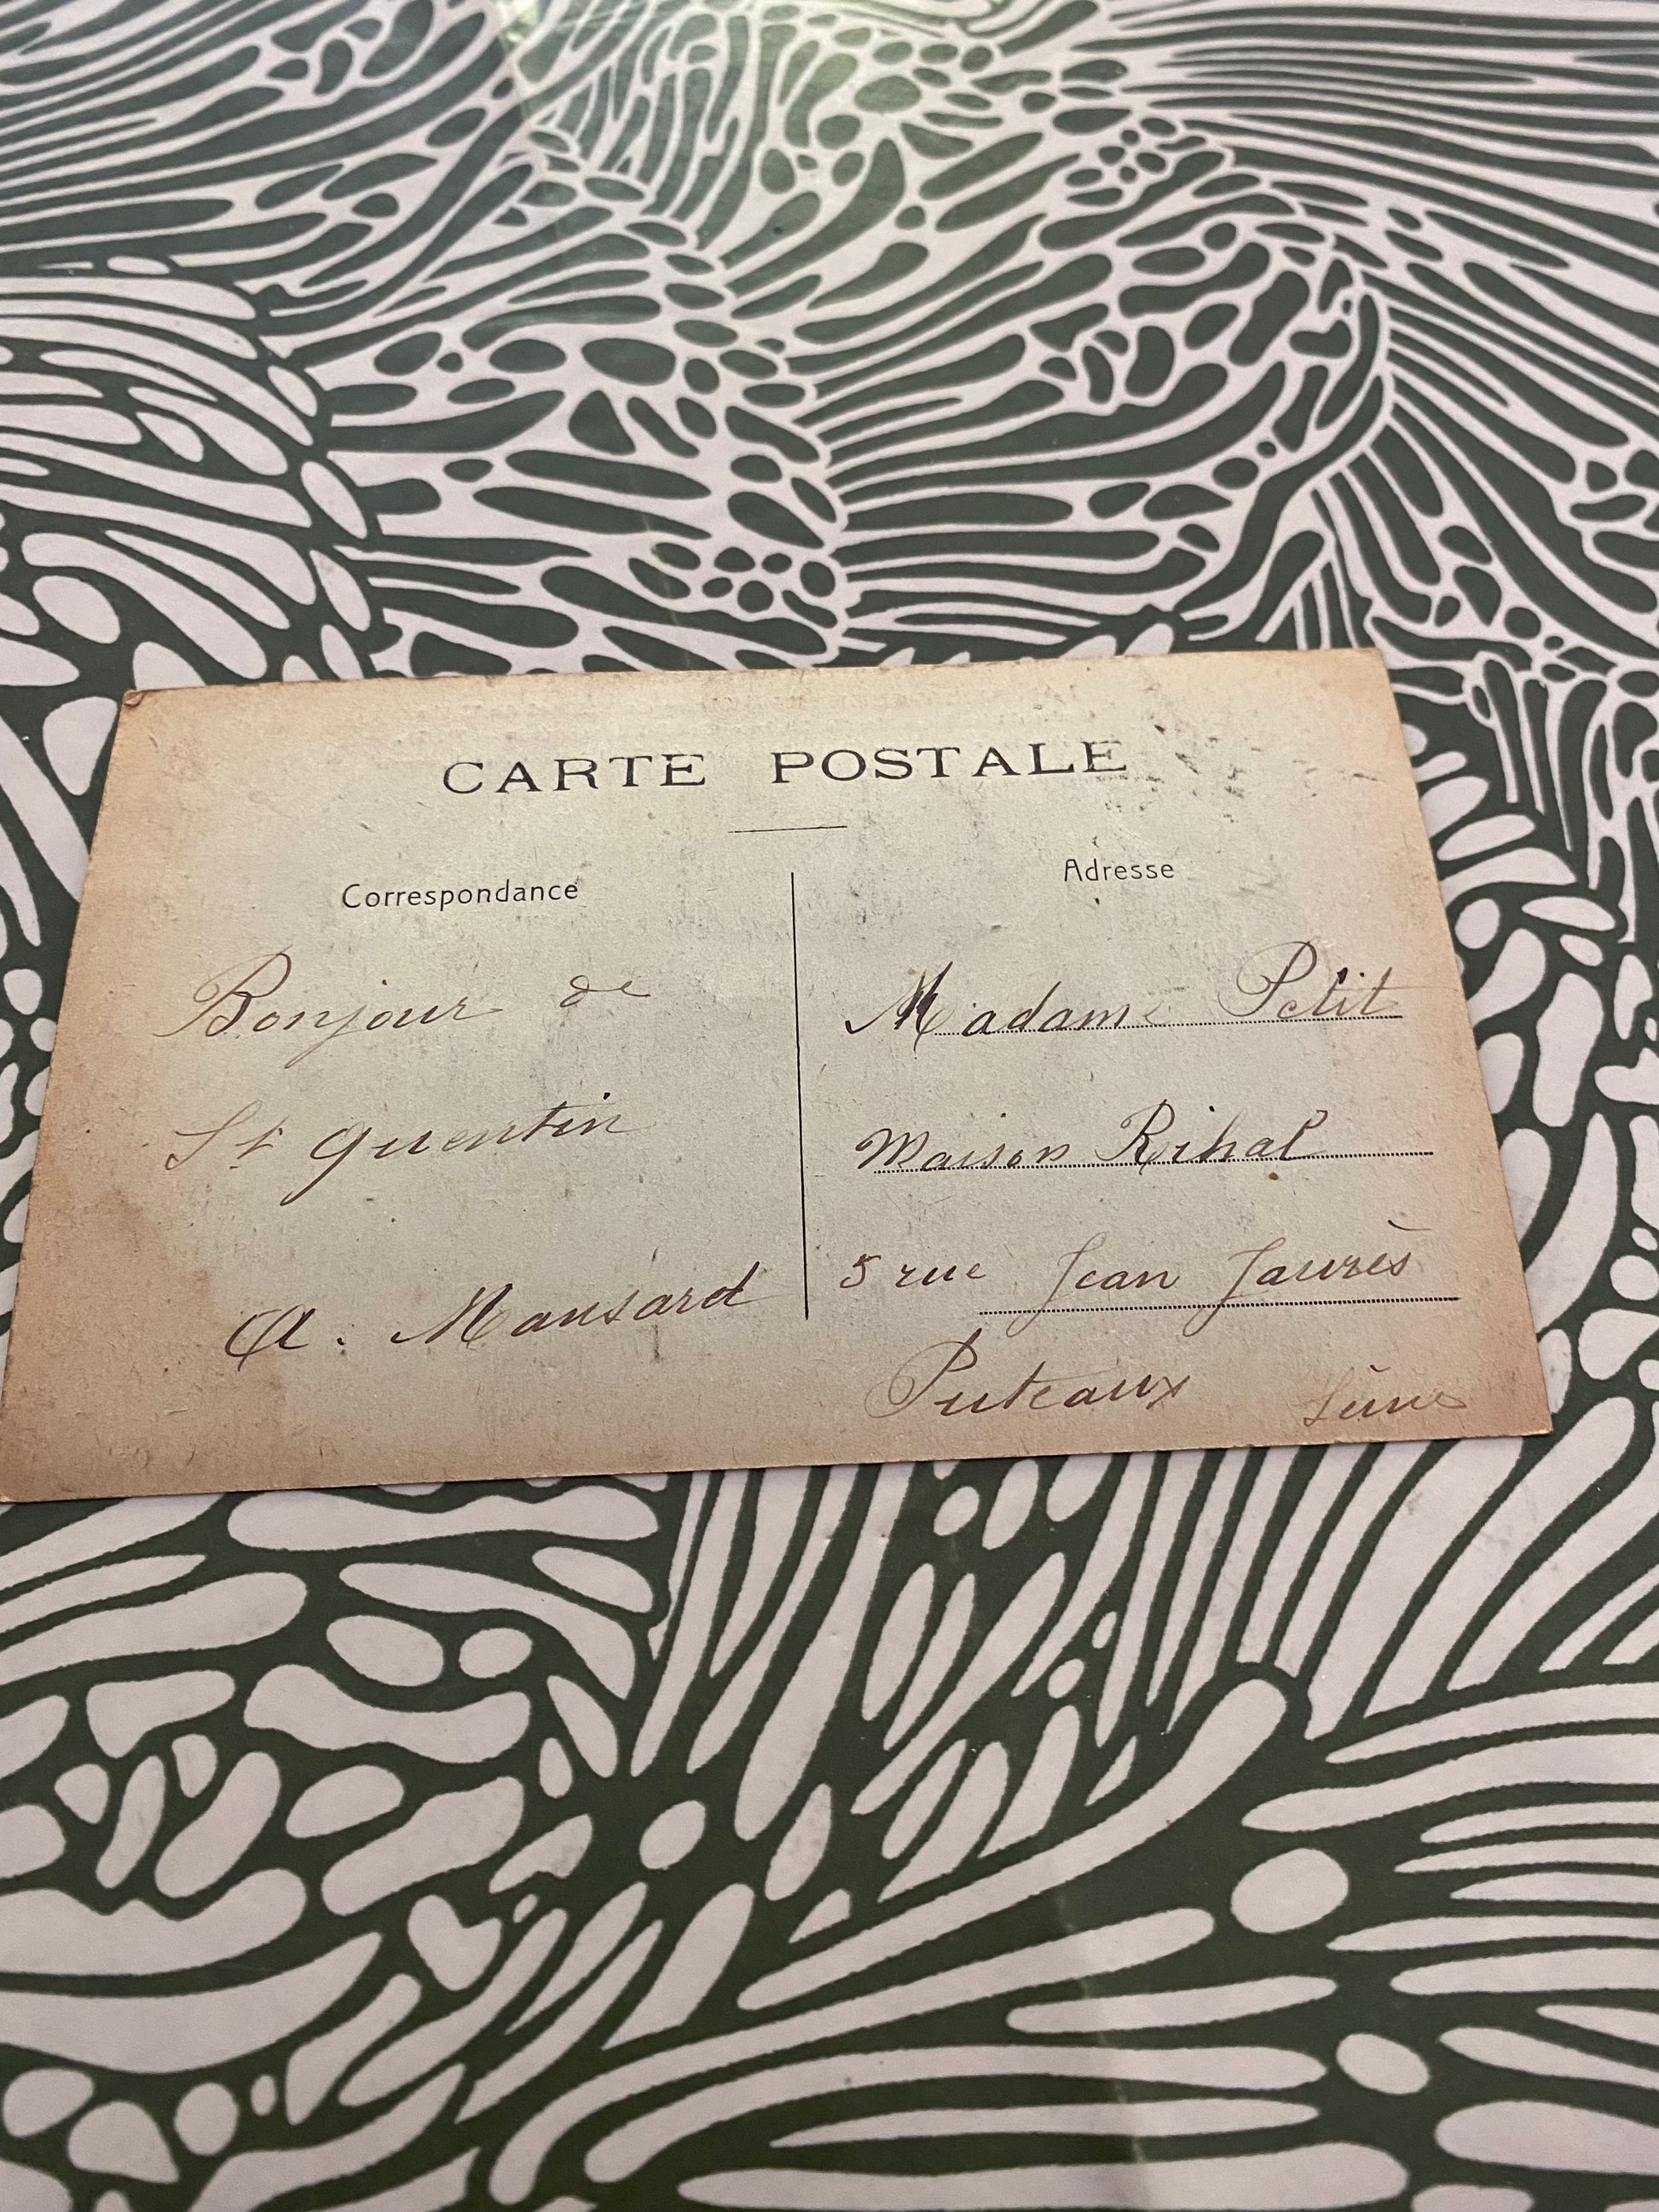 CARTE POSTALE
Correspondance
Bonjour de
St Quentin
A. Mansard
Adresse
Madame Petit
Maison Rihal
5 rue Jean Jaurès
Puteaux Seine